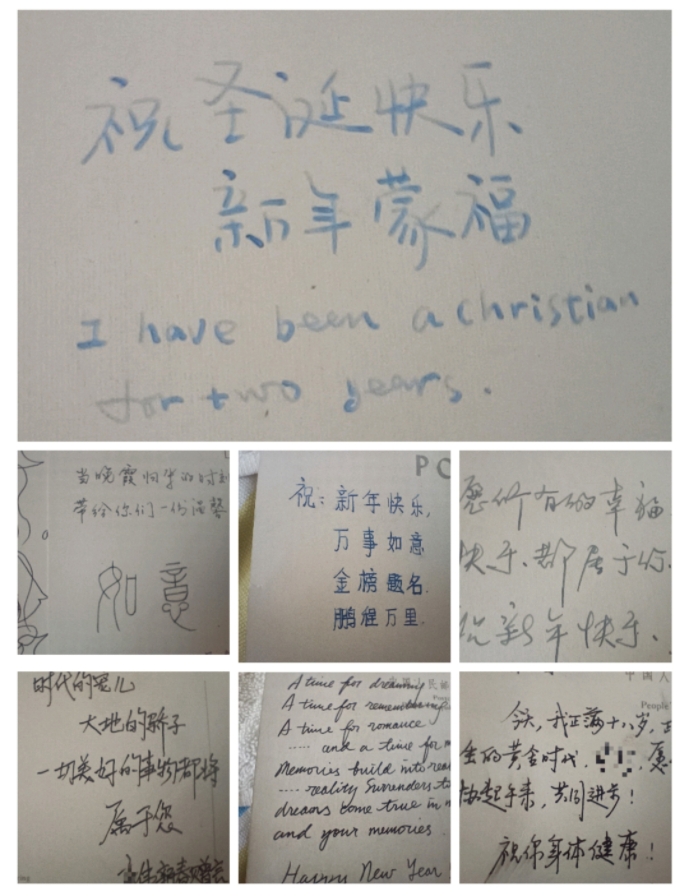 祝圣诞快乐
新年蒙福
I have been a christian
for two years.
当晚霞归华的时刻
带给你们一份温馨
如意
PC
祝：新年快乐，
万事如意
金榜题名
鹏程万里
愿所有的幸福
快乐、都属于你
祝新年快乐、
时代的宠儿
大地的骄子
一切美好的事物都将
属于您
A time for dreaming
A time for remembering
A time for romance
..... and a time for
Memories build into real
.... reality surrenders to
dreams come true in
and your memories
Happy New Year
中国人
People
今天，我正满十八岁，
的黄金时代，愿
起手来，共同进步！
祝你身体健康！